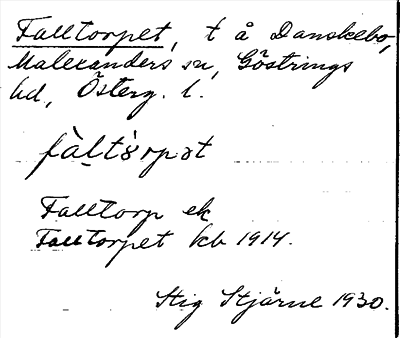 Falltorpet, t å Danskebo,
Malexanders sn, Göstrings
hd, Österg. l.
fàltòrpət
Falltorp ek
Falltorpet kb 1914.
Stig Stjärne 1930.